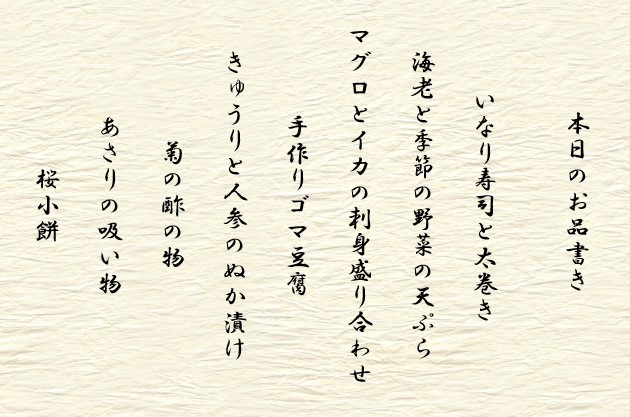 本日のお品書き
いなり寿司と太巻き
海老と季節の野菜の天ぷら
マグロとイカの刺身盛り合わせ
手作りゴマ豆腐
きゅうりと人参のぬか漬け
菊の酢の物
あさりの吸い物
桜小餅